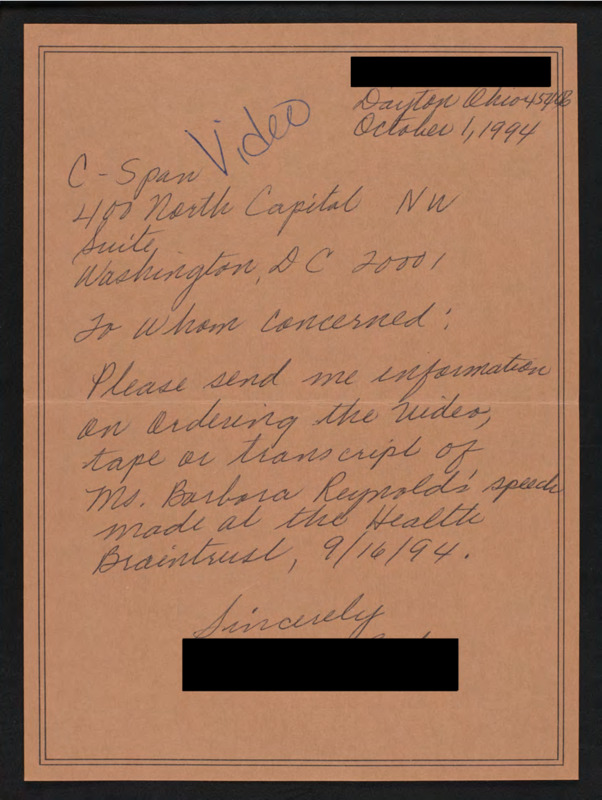 Dayton Ohio
October 1, 1994
Video
C-Span
400 North Capital NW
Suite,
Washington, DC 20001
To Whom Concerned:
Please send me information
on ordering the video,
tape or transcript of
Ms. Barbara Reynolds' speech
made at the Health
Braintrust, 9/16/94.
Sincerely